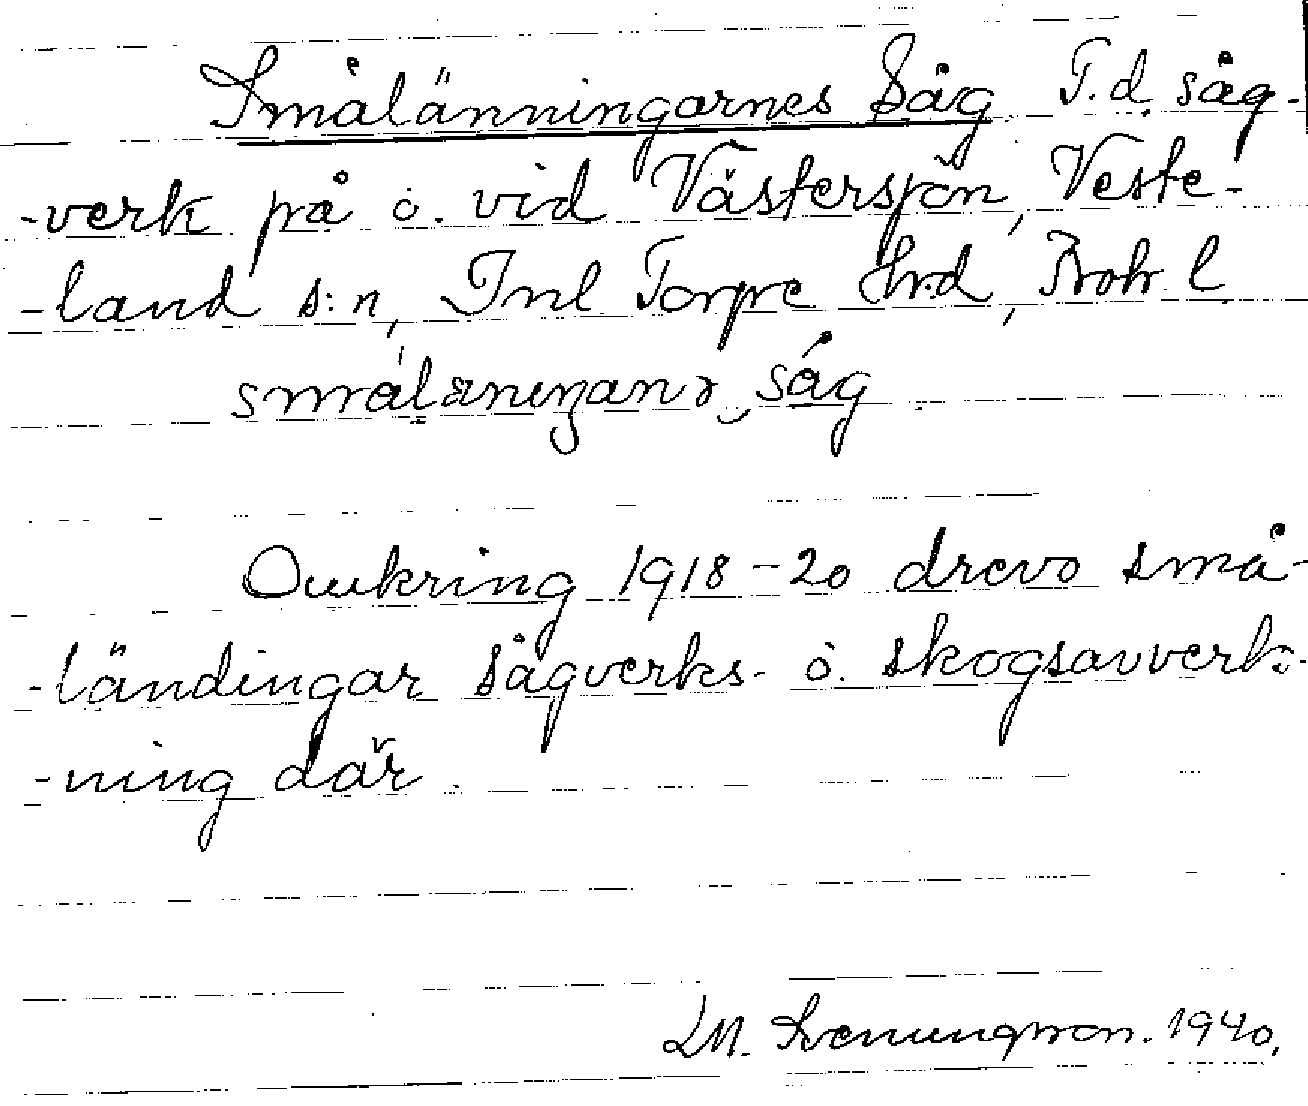 Smålänningarnes Såg. F.d. såg-
-verk på ö. vid Västersjön, Veste-
-land s:n, Inl Torpe Hrd, Boh. l.
såg
Omkring 1918-20 drevo små-
-ländingar sågverks- o. skogsavverk-
-ning där.
LM. Svenungsson. 1940.